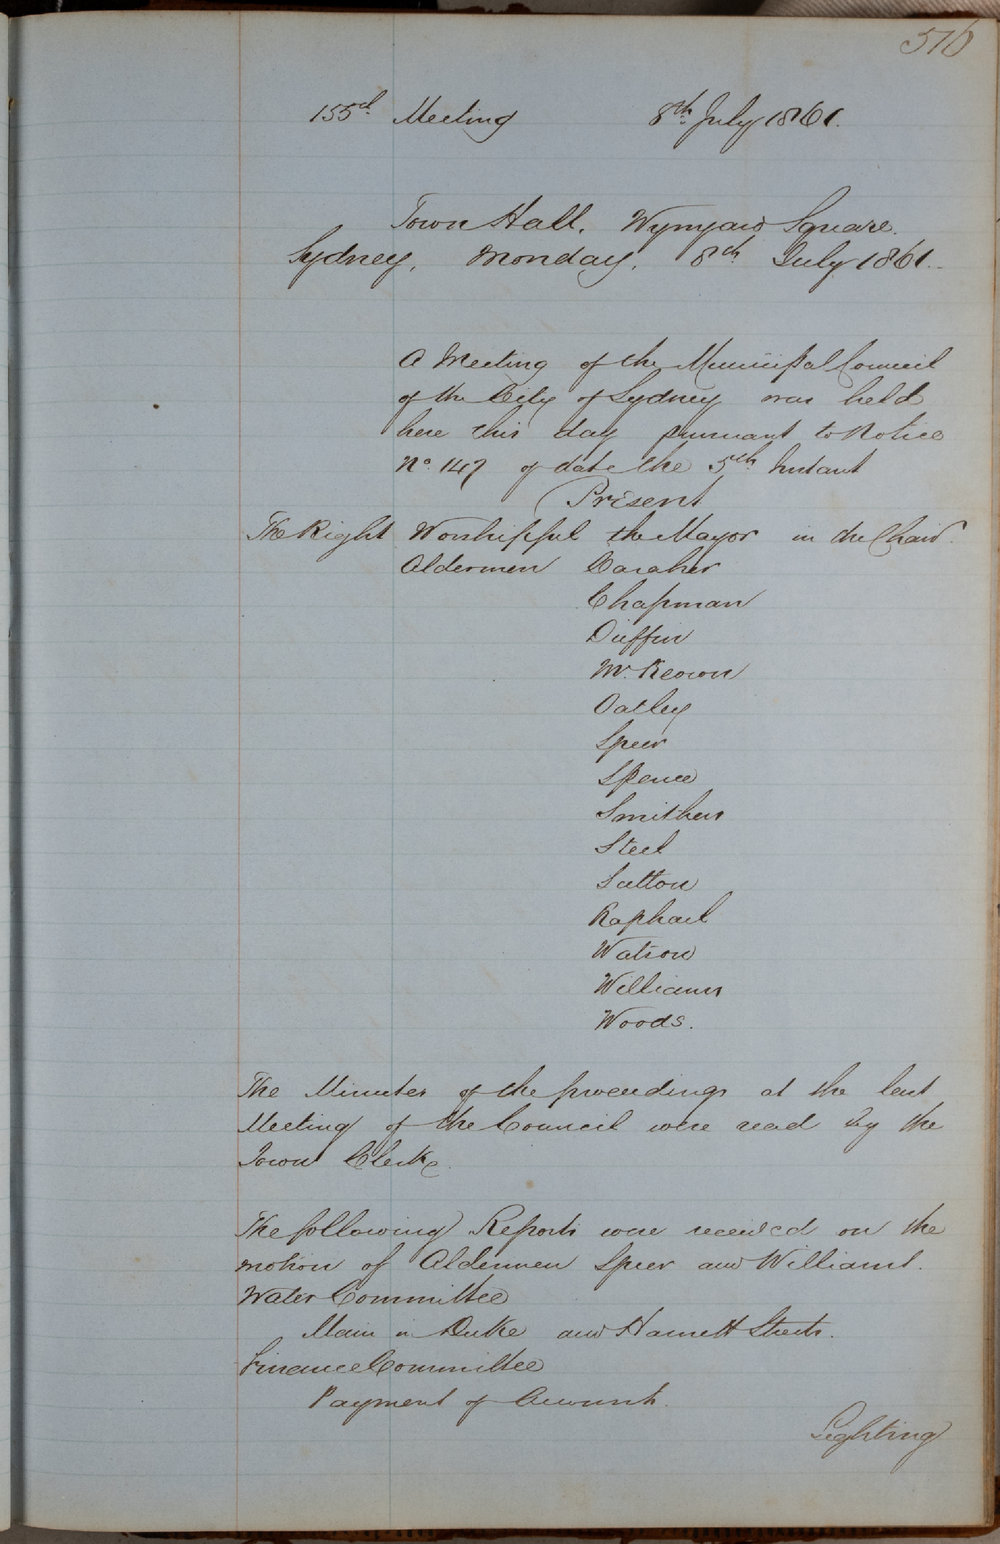 576
155th Meeting 8th July 1861.
Town Hall, Wynyard Square.
Sydney, Monday, 8th July 1861.
A Meeting of the Municipal Council
of the City of Sydney was held
here this day pursuant to Notice
No. 147 of date the 5th Instant
Present
The Right Worshipful the Mayor in the Chair.
Aldermen Caraher
Chapman
Duffin
McKeown
Oatley
Speer
Spence
Smithers
Steel
Sutton
Raphael
Watson
Williams
Woods.
The Minutes of the proceedings at the last
Meeting of the Council were read by the
Town Clerk.
The following Reports were received on the
motion of Aldermen Speer and Williams.
Water Committee
Main in Duke and Harnett Streets.
Finance Committee
Payment of Accounts.
Lighting